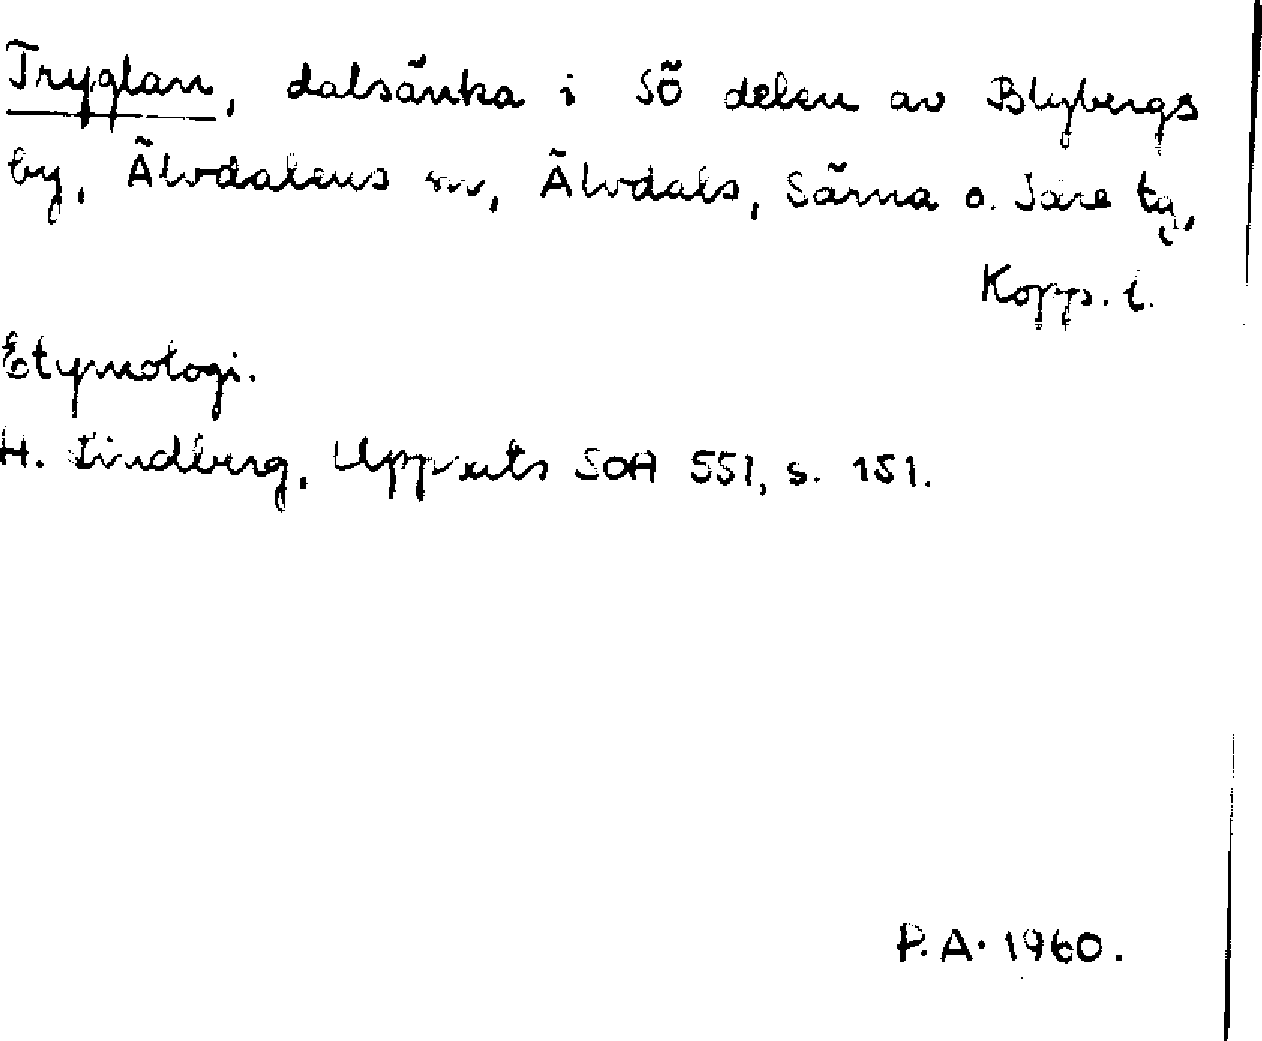 Tryglan, dalsänka i SÖ delen av Blybergs
by, Älvdalens sn, Älvdals, Särna o. Idre tg,
Kopp. l.
Etymologi.
H. Lindberg, Uppsats SOA 551, s. 151.
P. A. 1960.